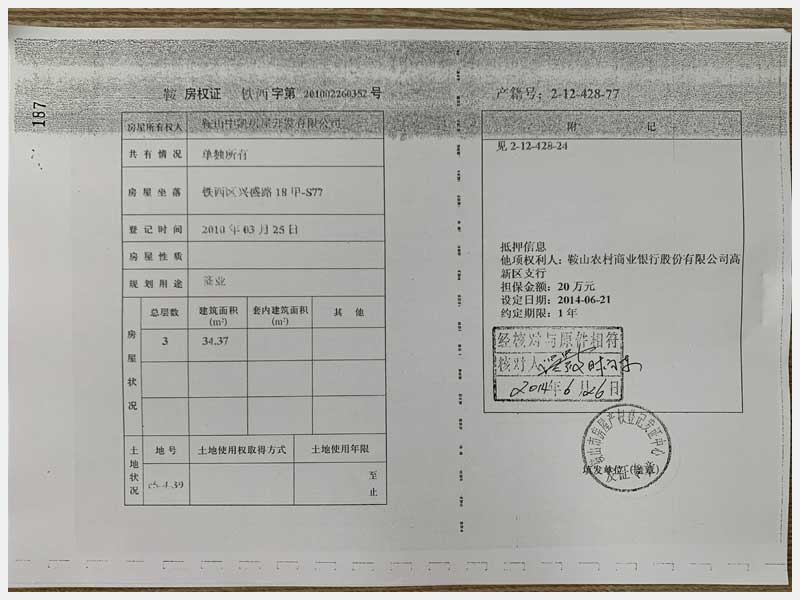 187
鞍 房权证 铁西 字第 201002260352 号
房屋所有权人 鞍山中凯房屋开发有限公司
共有情况 单独所有
房屋坐落 铁西区兴盛路 18 甲-S77
登记时间 2010 年 03 月 25 日
房屋性质
规划用途 商业
房屋状况
总层数 建筑面积(m²) 套内建筑面积(m²) 其 他
3 34.37
土地状况
地号 土地使用权取得方式 土地使用年限
c5-4-39 至
止
产籍号: 2-12-428-77
附 记
见 2-12-428-24
抵押信息
他项权利人: 鞍山农村商业银行股份有限公司高
新区支行
担保金额: 20 万元
设定日期: 2014-06-21
约定期限: 1 年
经核对与原件相符
核对人
2014年6月26日
鞍山市房屋产权登记发证中心
填发单位 (盖章)
发证专章